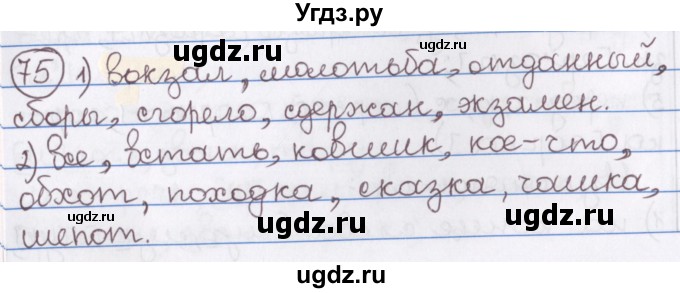 Угдз.ру
75 1) вокзал, молотьба, отданный,
сборы, сгорело, сдержан, экзамен.
2) все, встать, ковшик, кое-что,
обхот, походка, сказка, чашка,
шепот.
ugdz.ru ugdz.ru
ugdz.ru
ugdz.ru ugdz.ru
ugdz.ru
ugdz.ru ugdz.ru
ugdz.ru